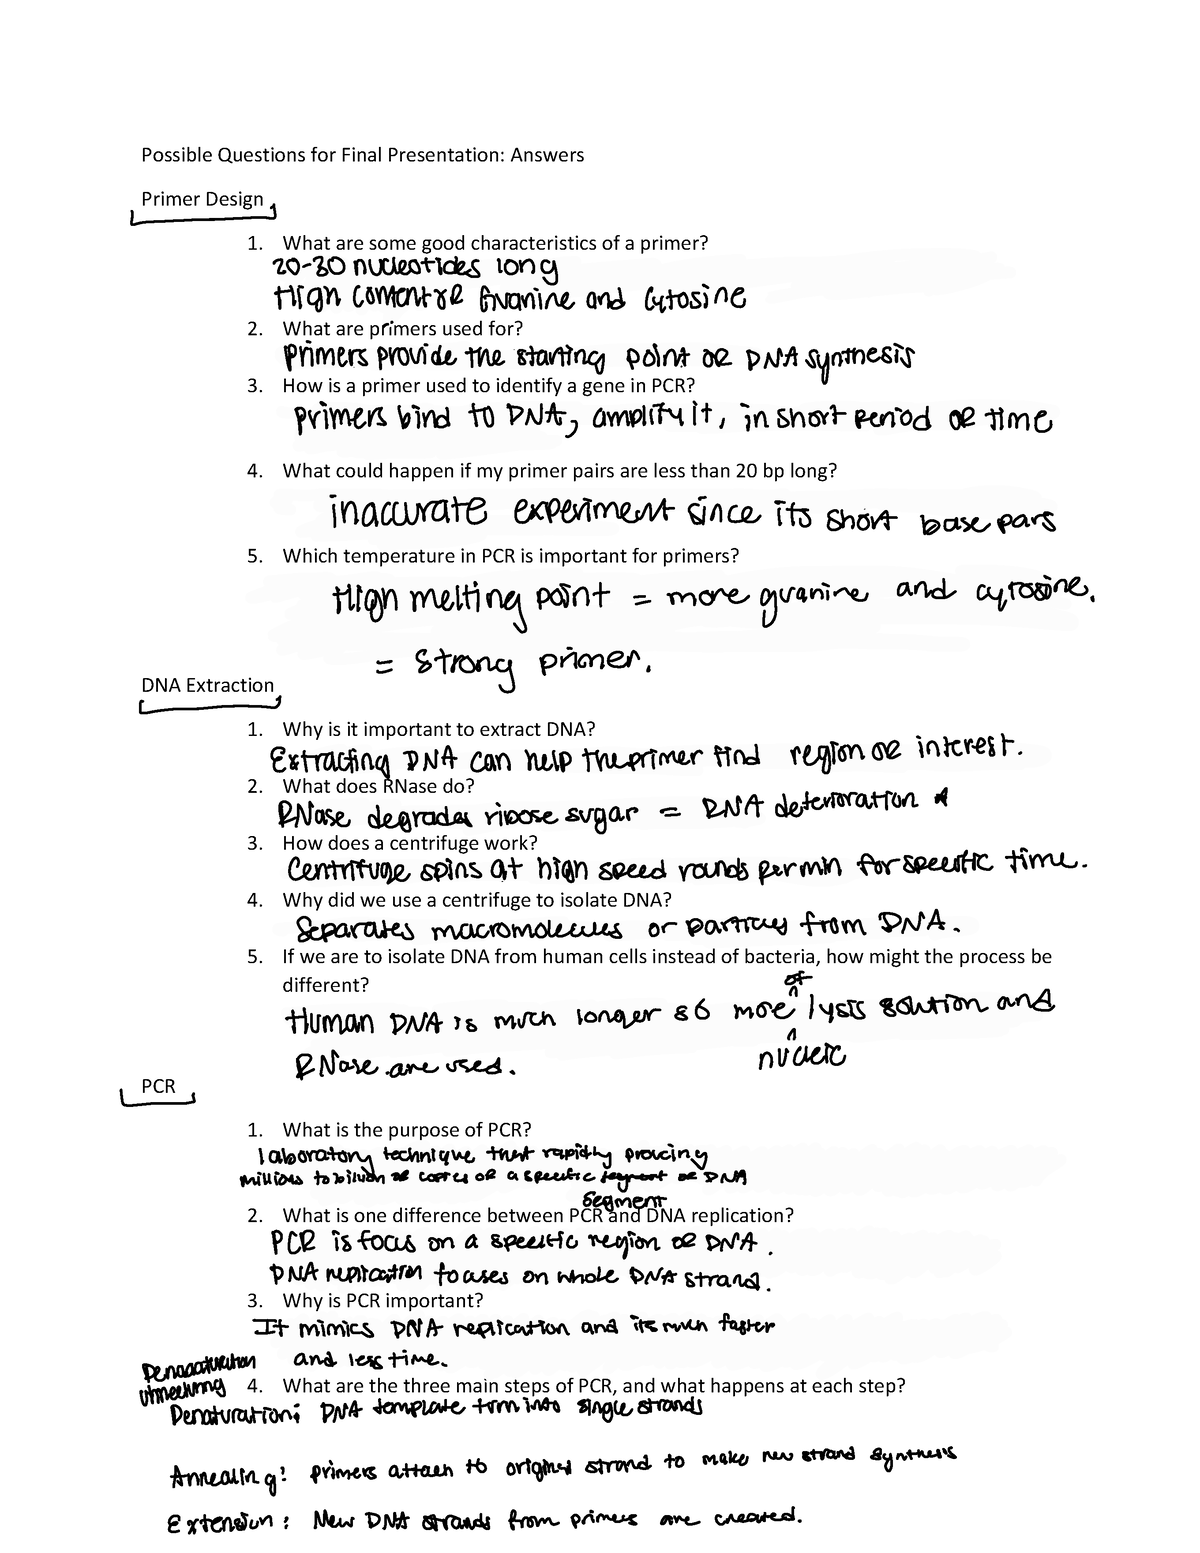 Possible Questions for Final Presentation: Answers
Primer Design
1. What are some good characteristics of a primer?
20-30 nucleotides long
High content of Guanine and Cytosine
2. What are primers used for?
Primers provide the starting point of DNA synthesis
3. How is a primer used to identify a gene in PCR?
Primers bind to DNA, amplify it, in short period of time
4. What could happen if my primer pairs are less than 20 bp long?
inaccurate experiment since its short base pars
5. Which temperature in PCR is important for primers?
High melting point = more guanine and cytosine.
= Strong primer.
DNA Extraction
1. Why is it important to extract DNA?
Extracting DNA can help the primer find region of interest.
2. What does RNase do?
RNase degrades ribose sugar = RNA deterioration
3. How does a centrifuge work?
Centrifuge spins at high speed rounds per min for specific time.
4. Why did we use a centrifuge to isolate DNA?
Separates macromolecules or particles from DNA.
5. If we are to isolate DNA from human cells instead of bacteria, how might the process be
different?
of
Human DNA is much longer so more lysis solution and
nucleic
RNase are used.
PCR
1. What is the purpose of PCR?
laboratory technique that rapidly producing
millions to billion of copies of a specific segment of DNA
segment
2. What is one difference between PCR and DNA replication?
PCR is focus on a specific region of DNA.
DNA replication focuses on whole DNA strand.
3. Why is PCR important?
It mimics DNA replication and its much faster
and less time.
4. What are the three main steps of PCR, and what happens at each step?
Denaturation: DNA template turn into single strands
Annealing: primers attach to original strand to make new strand synthesis
Extension: New DNA strands from primers are created.